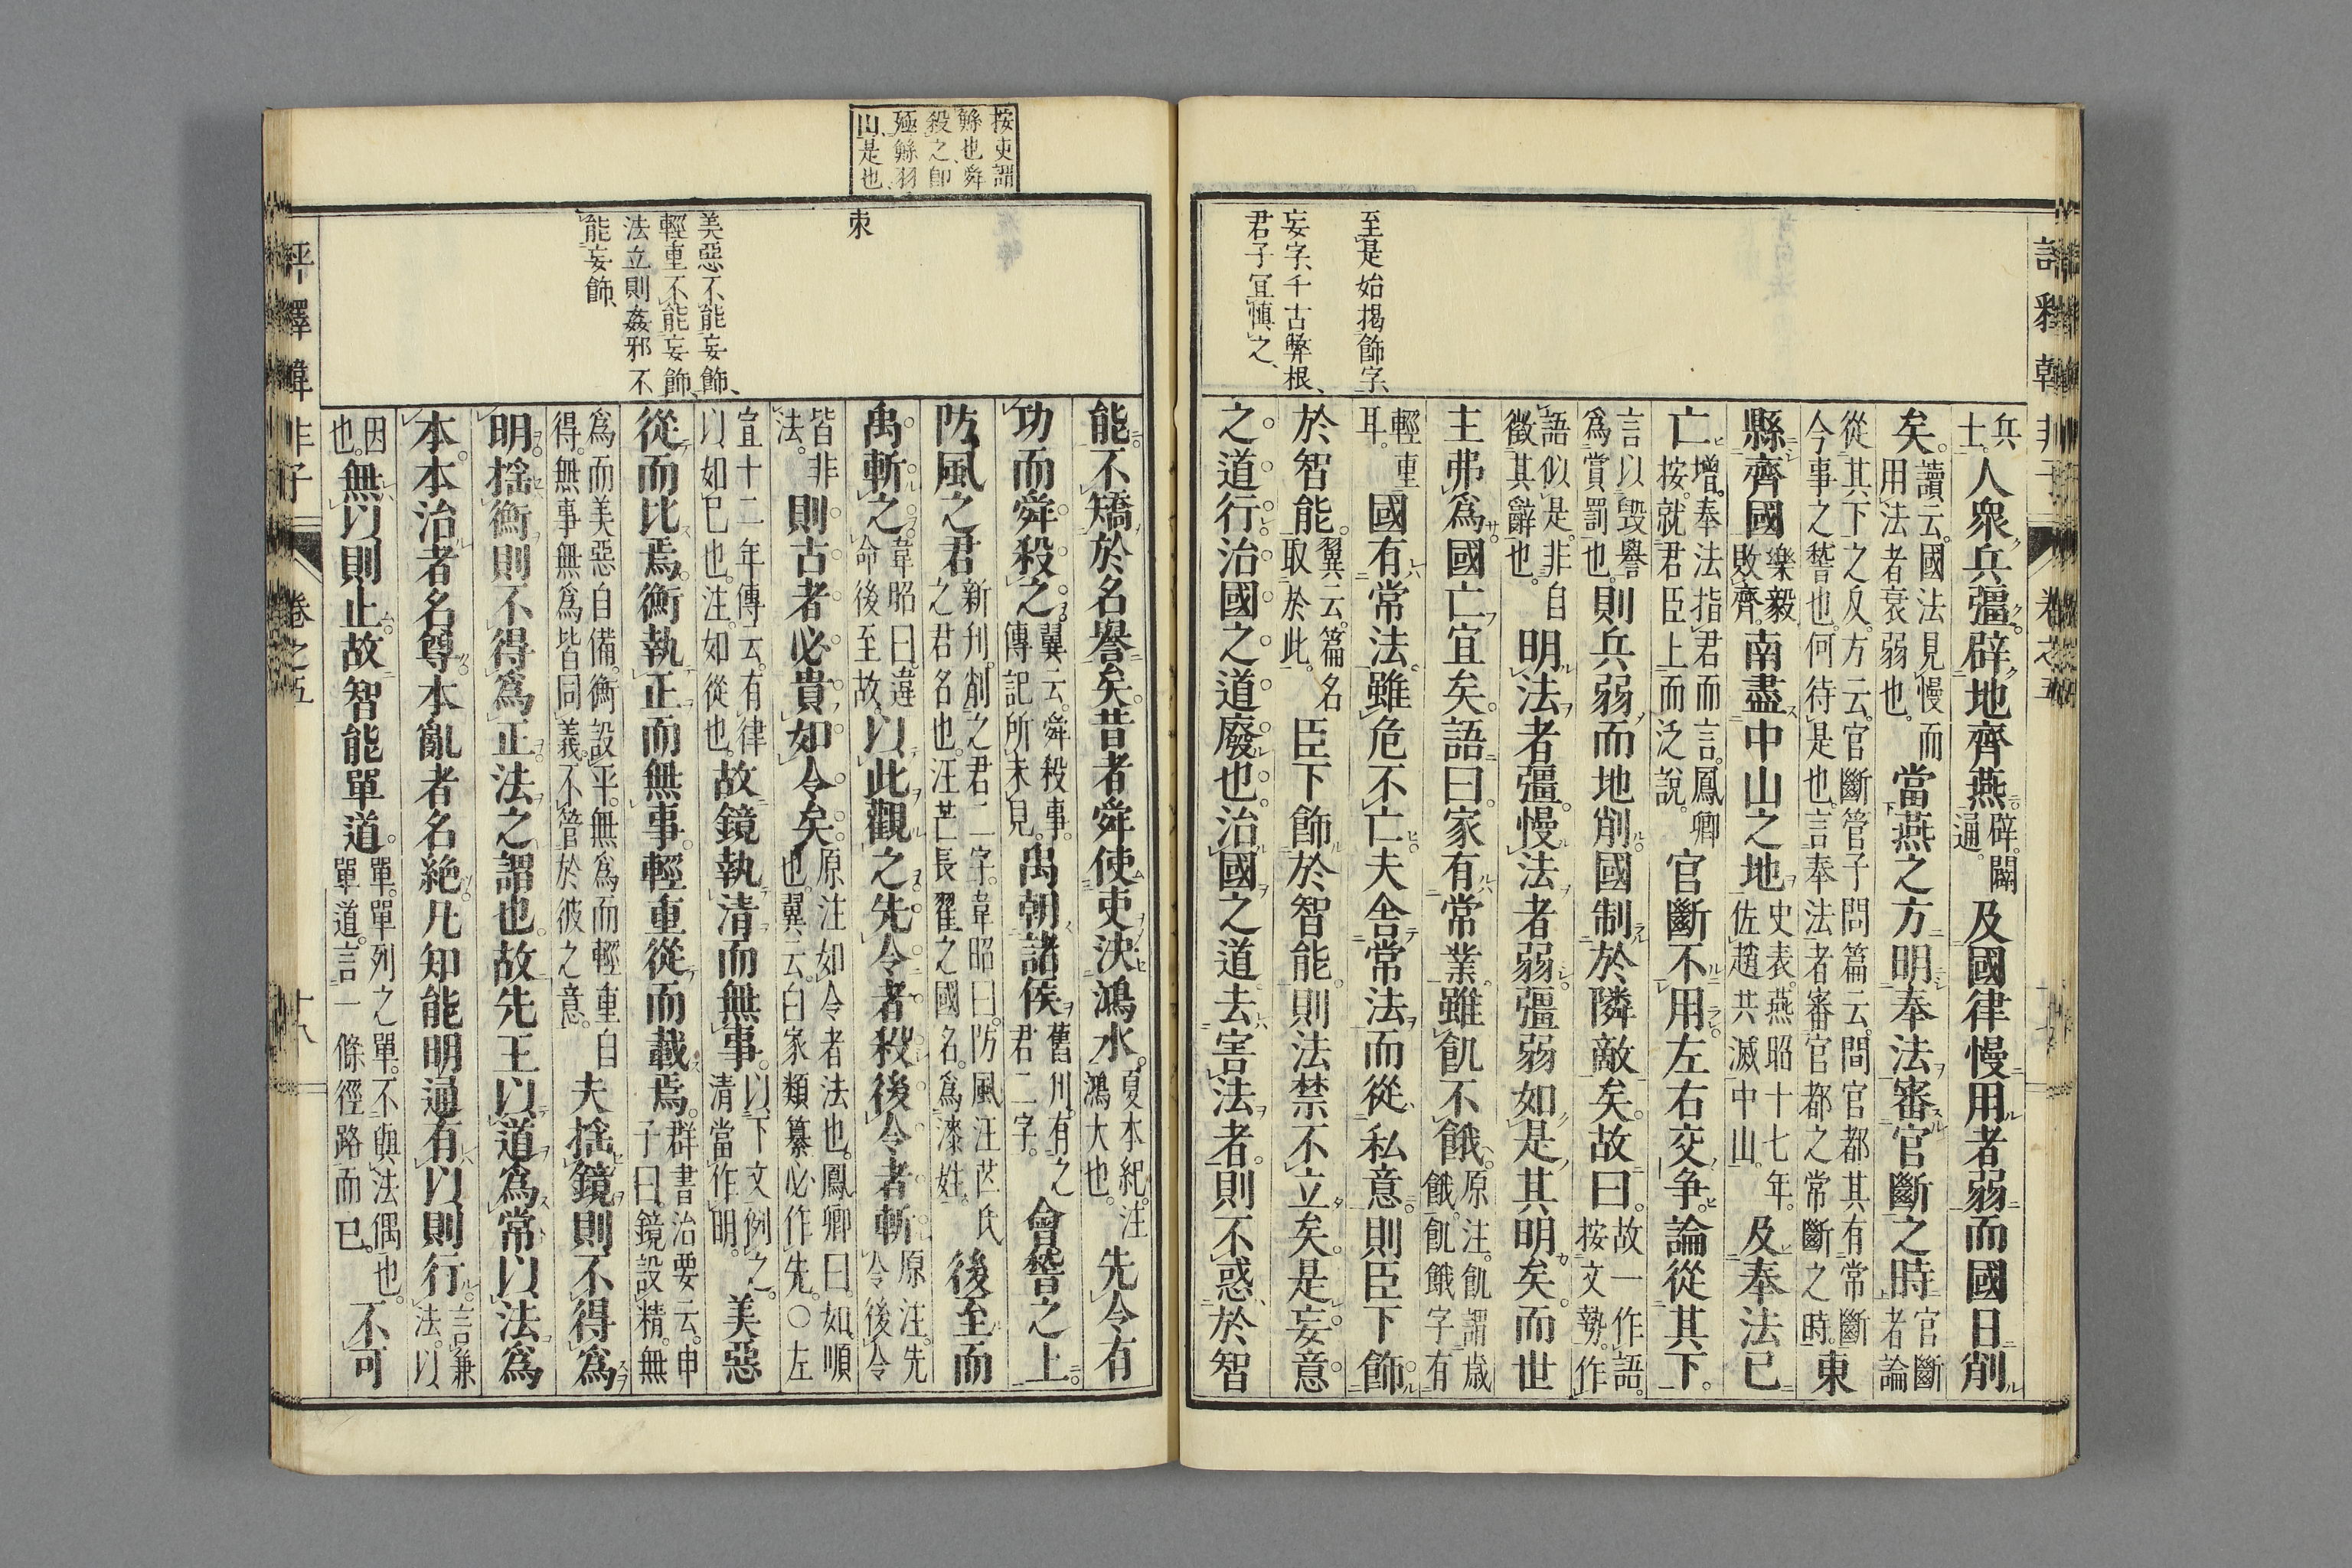 評釋韓非子 卷之五
至是始揭飾字、
妄字、千古弊根、
君子宜慎之、
兵
士。人衆兵彊。辟地齊燕。辟。闢
通。及國律慢用者弱而國日削
矣。讀云。國法見慢而
用法者衰弱也。當燕之方明奉法審官斷之時官斷
者論
從其下之反。方云。官斷管子問篇云。問官都其有常斷
今事之稽也。何待是也。言奉法者審官都之常斷之時。東
縣齊國樂毅
敗齊。南盡中山之地史表。燕昭十七年。
佐趙共滅中山。及奉法已
亡。增。奉法指君而言。鳳卿
按。就君臣上而泛說。官斷不用左右交爭。論從其下。
言以毀譽
爲賞罰也。則兵弱而地削。國制於隣敵矣。故曰。故一作語。
按文勢。作
語似是。非自
徵其辭也。明法者彊。慢法者弱。彊弱如是其明矣。而世
主弗爲國亡宜矣。語曰。家有常業。雖飢不餓。原注。飢謂歳
餓。飢餓字有
輕重
耳。國有常法。雖危不亡。夫舍常法而從私意。則臣下飾
於智能。翼云。篇名
取於此。臣下飾於智能。則法禁不立矣。是妄意
之道行。治國之道廢也。治國之道去害法者。則不惑於智
按吏謂
鯀也舜
殺之、卽
殛鯀羽
山是也、
東
美惡不能妄飾、
輕重不能妄飾、
法立則姦邪不
能妄飾、
能。不矯於名譽矣。昔者舜使吏決鴻水。夏本紀。注
鴻大也。先令有
功而舜殺之。翼云。舜殺事。
傳記所未見。禹朝諸侯舊刋。有之
君二字。會稽之上。
防風之君新刋。削之君二字。韋昭曰。防風汪芒氏
之君名也。汪芒長翟之國名。爲漆姓。後至而
禹斬之。韋昭曰。違
命後至故。以此觀之。先令者殺。後令者斬原注。先
令後令
皆非
法。則古者必貴如令矣。原注如令者法也。鳳卿曰。如。順
也。翼云。白家類纂必作先。○左
宣十二年傳云。有律
以如已也。注。如從也。故鏡執淸而無事。以下文例之。
淸當作明。美惡
從而比焉。衡執正而無事。輕重從而載焉。群書治要云。申
子曰。鏡設精。無
爲而美惡自備。衡設平。無爲而輕重自
得。無事無爲皆同義。不管於彼之意。夫捨鏡則不得爲
明。捨衡則不得爲正。法之謂也。故先王以道爲常。以法爲
本。本治者名尊。本亂者名絶。凡知能明通。有以則行。言兼
法。以
因
也。無以則止。故智能單道。單。單列之單。不與法偶也。
單道。言一條徑路而已。不可
評釋韓非子 卷之五 十八